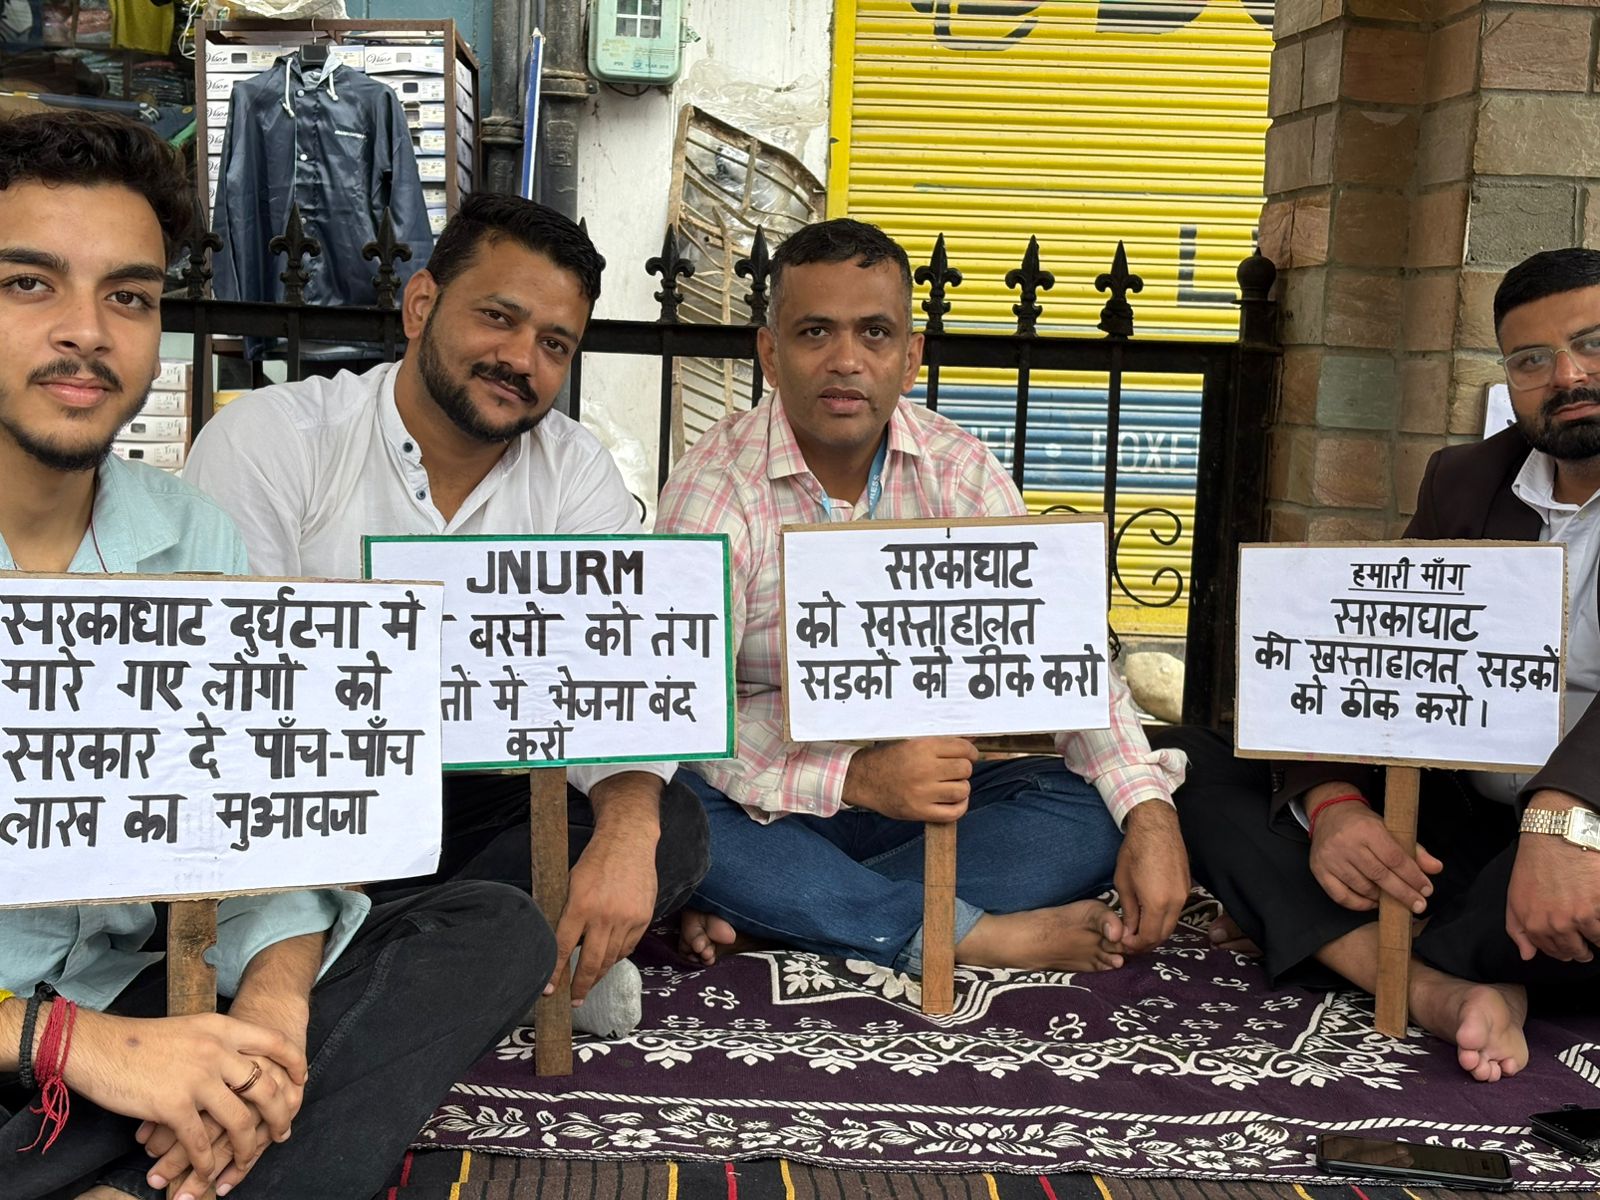 सरकाघाट दुर्घटना में
मारे गए लोगों को
सरकार दे पाँच-पाँच
लाख का मुआवजा
JNURM
बसों को तंग
तों में भेजना बंद
करो
सरकाघाट
को खस्ताहालत
सड़कों को ठीक करो
हमारी माँग
सरकाघाट
की खस्ताहालत सड़कों
को ठीक करो।
Visor
PRESS
BOXE